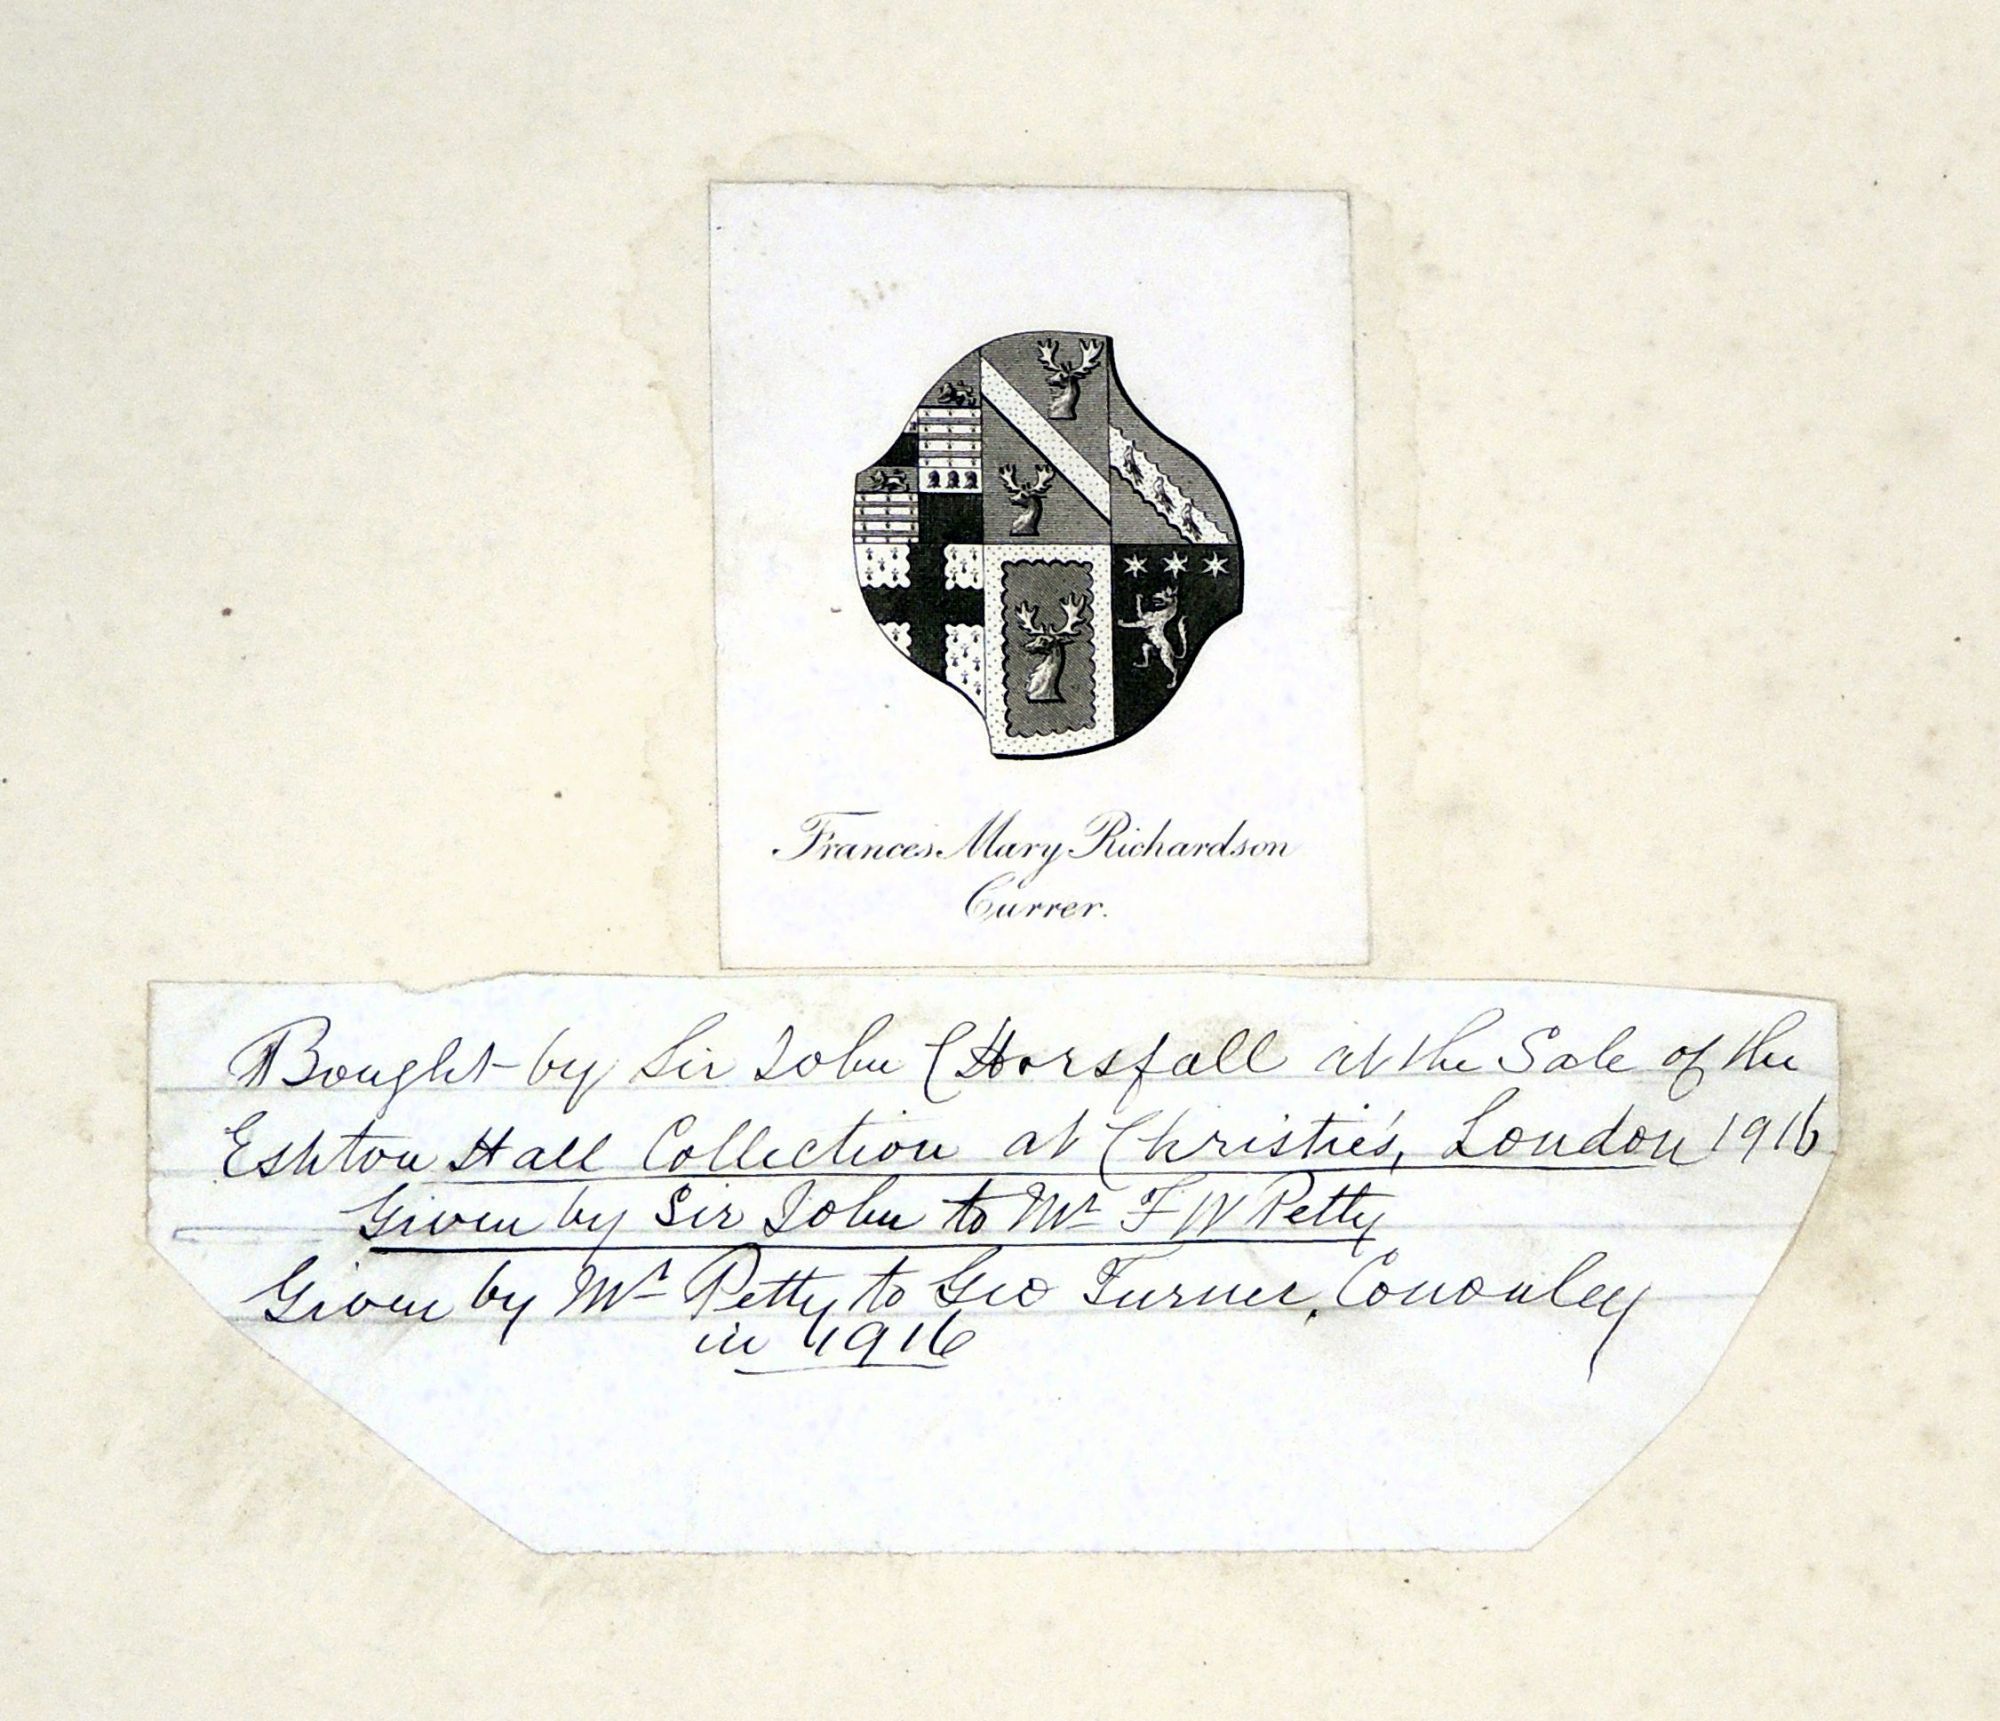 Frances Mary Richardson
Currer.
Bought by Sir John Horsfall at the Sale of the
Eshton Hall Collection at Christie's, London 1916
Given by Sir John to Mr F W Petty
Given by Mr Petty to Geo Turner, Cononley
in 1916